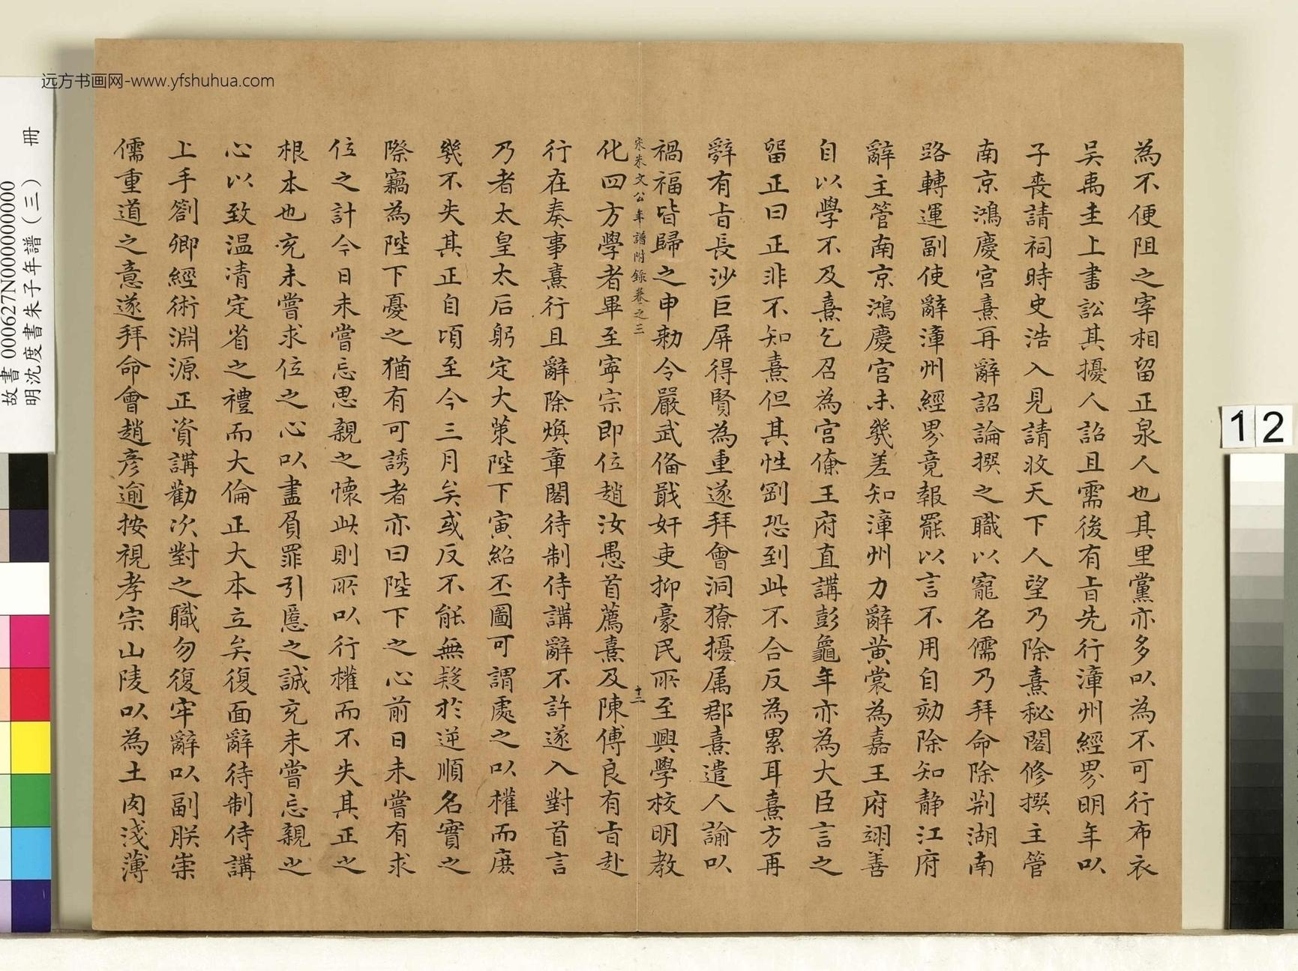 远方书画网-www.yfshuhua.com
為不便阻之宰相留正泉人也其里黨亦多以為不可行布衣
吳禹圭上書訟其擾人詔且需後有旨先行漳州經界明年以
子喪請祠時史浩入見請收天下人望乃除熹秘閣修撰主管
南京鴻慶宮熹再辭詔論撰之職以寵名儒乃拜命除荆湖南
路轉運副使辭漳州經界竟報罷以言不用自劾除知静江府
辭主管南京鴻慶宮未幾差知潭州力辭黄裳為嘉王府翊善
自以學不及熹乞召為宮僚王府直講彭龜年亦為大臣言之
留正曰正非不知熹但其性剛恐到此不合反為累耳熹方再
辭有旨長沙巨屏得賢為重遂拜會洞獠擾属郡熹遣人諭以
禍福皆歸之申勅令嚴武俻戢奸吏抑豪民所至興學校明教
宋朱文公年譜附錄卷之三
十二
化四方學者畢至寧宗即位趙汝愚首薦熹及陳傅良有旨赴
行在奏事熹行且辭除煥章閣待制侍講辭不許遂入對首言
乃者太皇太后躬定大策陛下寅紹丕圖可謂處之以權而庶
幾不失其正自頃至今三月矣或反不能無疑於逆順名實之
際竊為陛下憂之猶有可諉者亦曰陛下之心前日未嘗有求
位之計今日未嘗忘思親之懷此則所以行權而不失其正之
根本也充未嘗求位之心以盡負罪引慝之誠充未嘗忘親之
心以致温凊定省之禮而大倫正大本立矣復面辭待制侍講
上手劄卿經術淵源正資講勸次對之職勿復牢辭以副朕崇
儒重道之意遂拜命會趙彦逾按視孝宗山陵以為土肉淺薄
故書000627N000000000 冊
明沈度書朱子年譜(三)
12